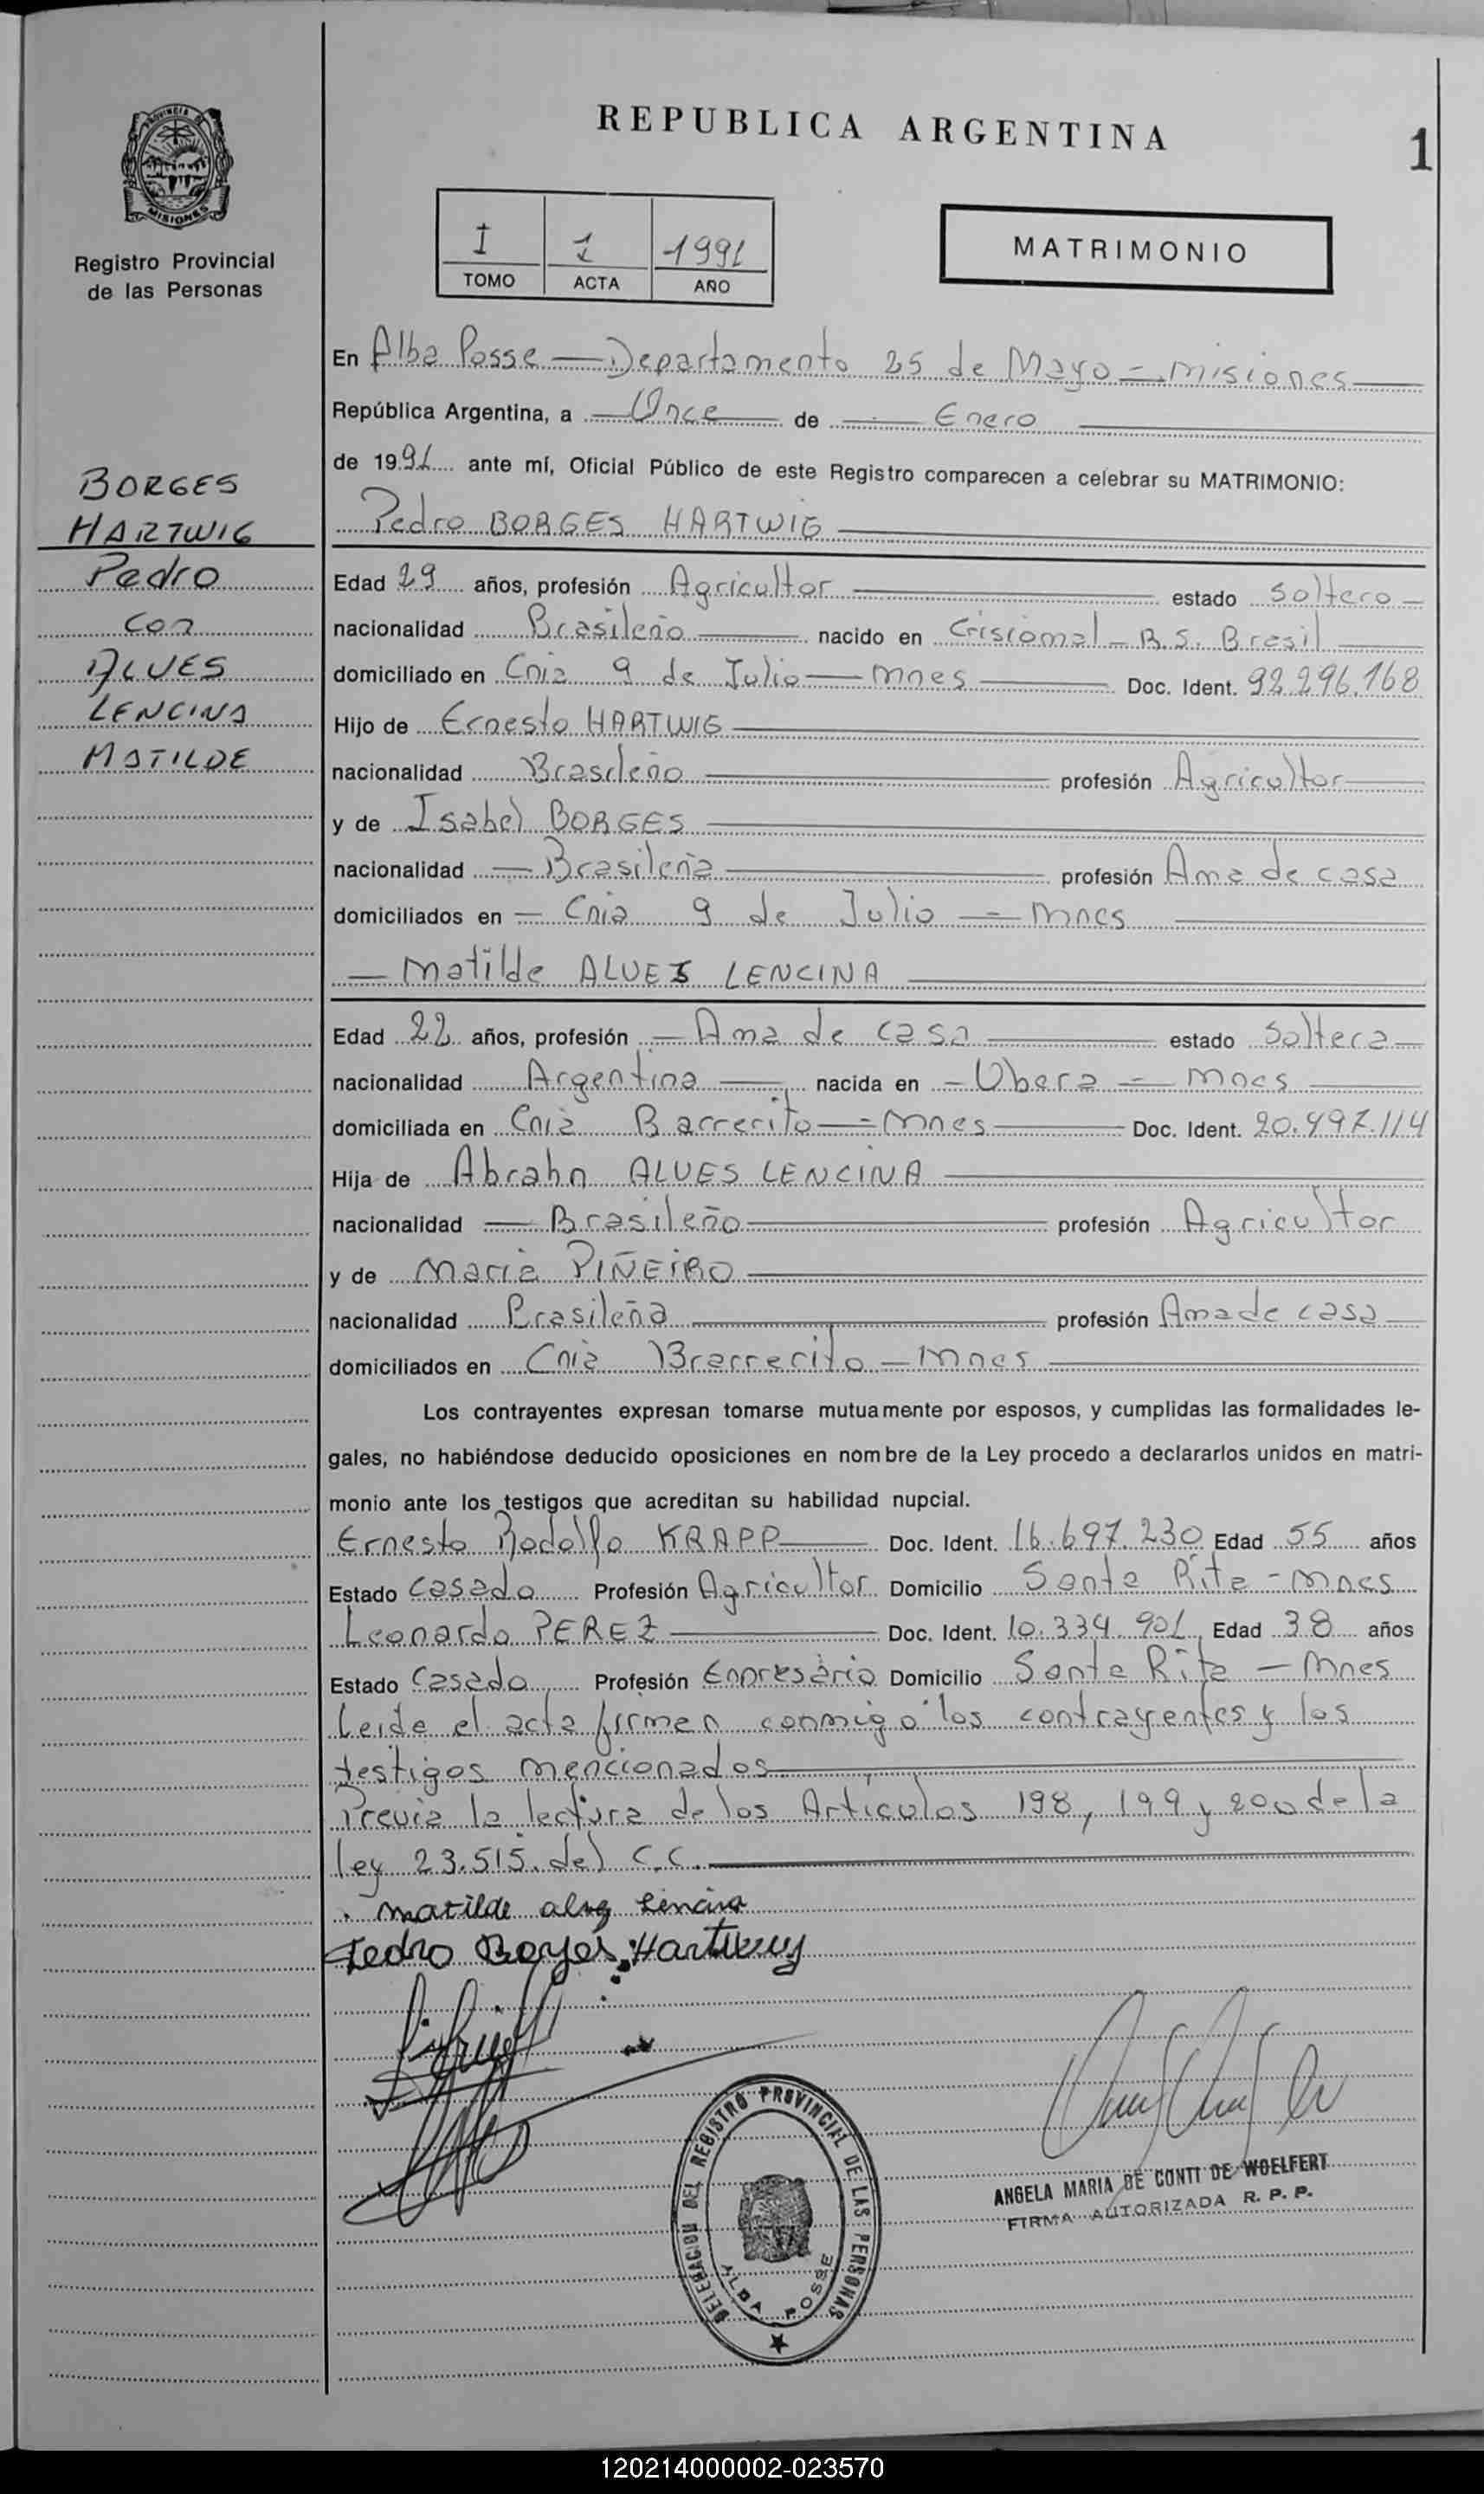 REPUBLICA ARGENTINA
1
PROVINCIA DE
MISIONES
Registro Provincial
de las Personas
I 1 1991
TOMO ACTA AÑO
MATRIMONIO
En Alba Posse — Departamento 25 de Mayo — Misiones
República Argentina, a Once de Enero
de 1991 ante mí, Oficial Público de este Registro comparecen a celebrar su MATRIMONIO:
BORGES
HARTWIG
Pedro
con
ALVES
LENCINA
MATILDE
Pedro BORGES HARTWIG
Edad 29 años, profesión Agricultor estado Soltero
nacionalidad Brasileño nacido en Crisiomal - R.S. Brasil
domiciliado en Cnia 9 de Julio — Mnes Doc. Ident. 92.296.168
Hijo de Ernesto HARTWIG
nacionalidad Brasileño profesión Agricultor
y de Isabel BORGES
nacionalidad Brasileña profesión Ama de casa
domiciliados en Cnia 9 de Julio — Mnes
Matilde ALVES LENCINA
Edad 22 años, profesión Ama de casa estado Soltera
nacionalidad Argentina nacida en Obera — Mnes
domiciliada en Cnia Barrerito — Mnes Doc. Ident. 20.497.114
Hija de Abrahn ALVES LENCINA
nacionalidad Brasileño profesión Agricultor
y de Maria PIÑEIRO
nacionalidad Brasileña profesión Ama de casa
domiciliados en Cnia Brarrerito — Mnes
Los contrayentes expresan tomarse mutuamente por esposos, y cumplidas las formalidades le-
gales, no habiéndose deducido oposiciones en nombre de la Ley procedo a declararlos unidos en matri-
monio ante los testigos que acreditan su habilidad nupcial.
Ernesto Rodolfo KRAPP Doc. Ident. 16.697.230 Edad 55 años
Estado Casado Profesión Agricultor Domicilio Santa Rita - Mnes
Leonardo PEREZ Doc. Ident. 10.334.901 Edad 38 años
Estado Casado Profesión Enpresario Domicilio Santa Rita — Mnes
Leida el acta firman conmigo los contrayentes y los
testigos mencionados.
Previa la lectura de los Artículos 198, 199 y 200 de la
ley 23.515. del C.C.
Matilde alvez Lencina
Pedro Borges Hartwig
DELEGACION DEL REGISTRO PROVINCIAL DE LAS PERSONAS
ALBA POSSE
ANGELA MARIA DE CONTI DE WOELFERT
FIRMA AUTORIZADA R. P. P.
120214000002-023570